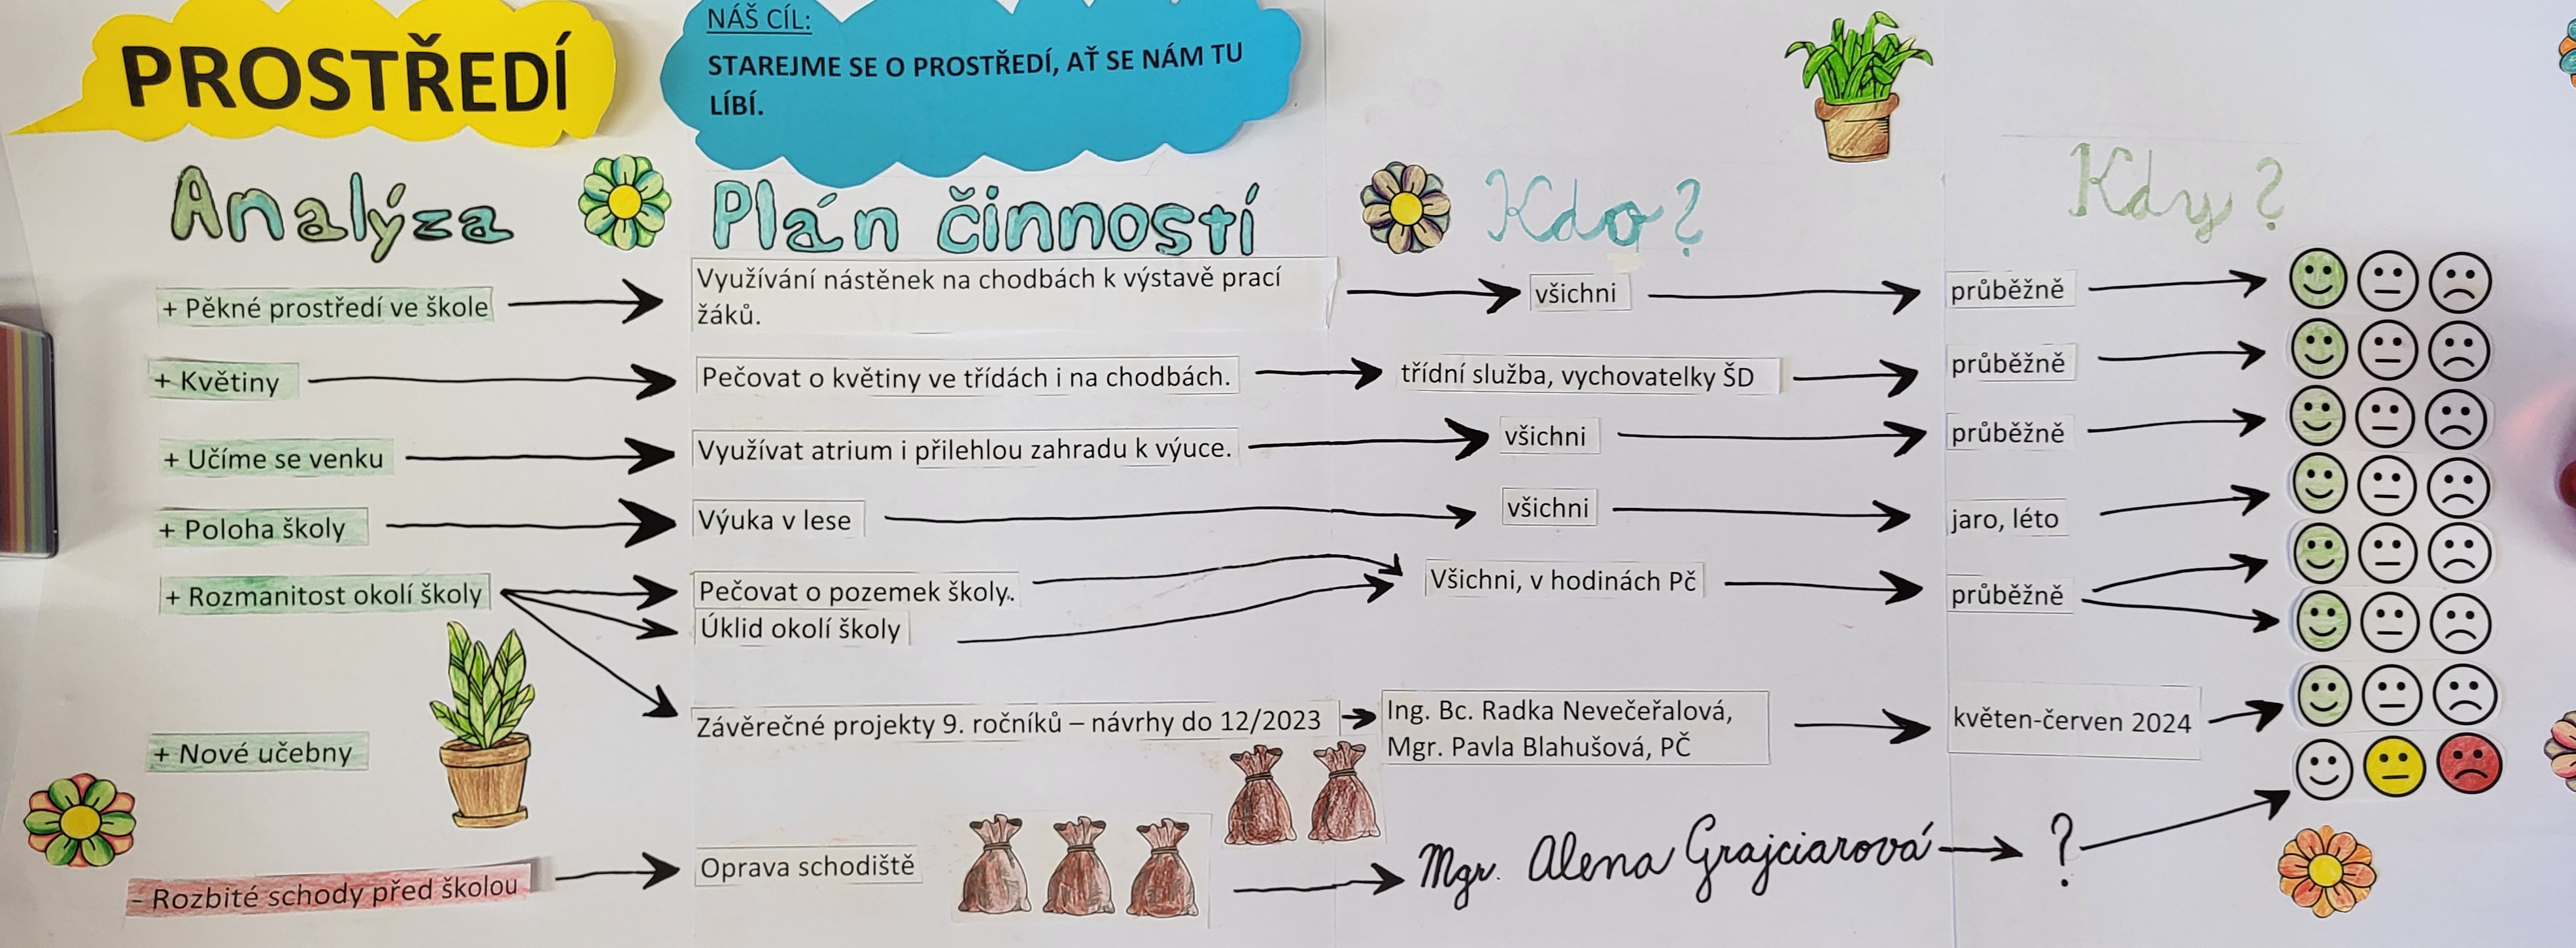 PROSTŘEDÍ
NÁŠ CÍL:
STAREJME SE O PROSTŘEDÍ, AŤ SE NÁM TU
LÍBÍ.
Analýza
Plán činností
Kdo?
Kdy?
+ Pěkné prostředí ve škole
Využívání nástěnek na chodbách k výstavě prací
žáků.
všichni
průběžně
+ Květiny
Pečovat o květiny ve třídách i na chodbách.
třídní služba, vychovatelky ŠD
průběžně
+ Učíme se venku
Využívat atrium i přilehlou zahradu k výuce.
všichni
průběžně
+ Poloha školy
Výuka v lese
všichni
jaro, léto
+ Rozmanitost okolí školy
Pečovat o pozemek školy.
Úklid okolí školy
Všichni, v hodinách Pč
průběžně
Závěrečné projekty 9. ročníků – návrhy do 12/2023
Ing. Bc. Radka Nevečeřalová,
Mgr. Pavla Blahušová, PČ
květen-červen 2024
+ Nové učebny
- Rozbité schody před školou
Oprava schodiště
Mgr. Alena Grajciarová
?